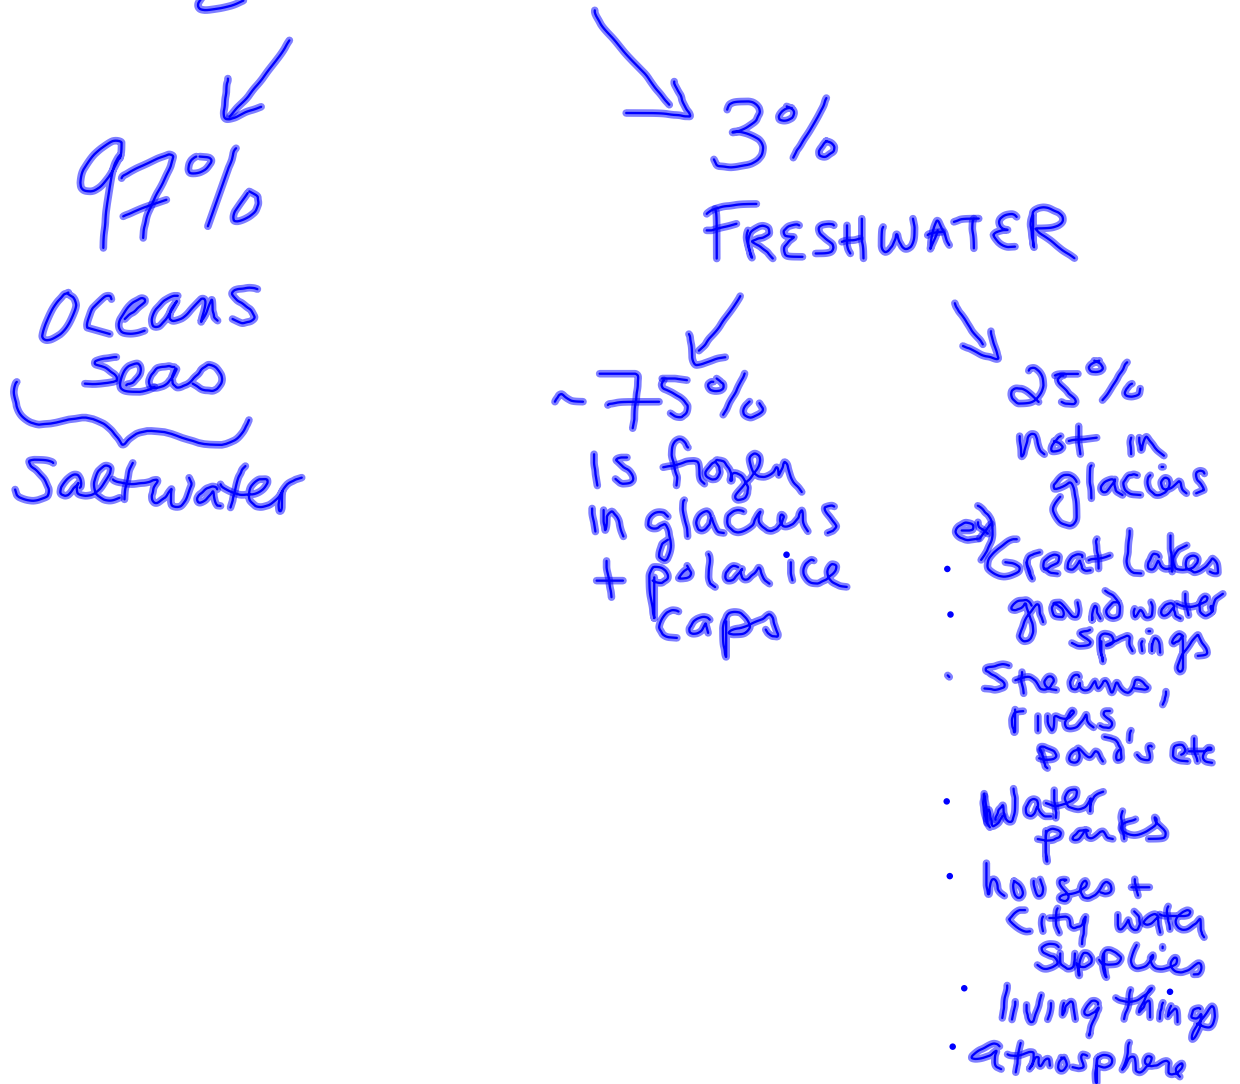 97%
oceans
seas
Saltwater
3%
FRESHWATER
~75%
is frozen
in glaciers
+ polar ice
caps
25%
not in
glaciers
ex)
• Great Lakes
• groundwater
springs
• Streams,
rivers,
pond's etc
• Water
parks
• houses +
city water
supplies
• living things
• atmosphere